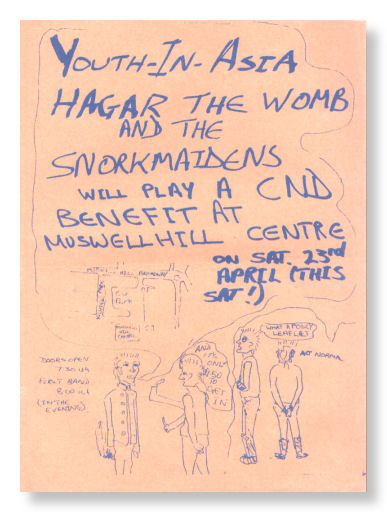 YOUTH-IN-ASIA
HAGAR THE WOMB
AND THE
SNORKMAIDENS
WILL PLAY A CND
BENEFIT AT
MUSWELLHILL CENTRE
ON SAT. 23rd
APRIL (THIS
SAT!)
HILL BROADWAY
DOORS OPEN
7.30
FIRST BAND
8.00
(IN THE
EVENING)
AND
IT'S
ONLY
TO
GET
IN
WHAT A
LEAFLET
ACT NORMAL